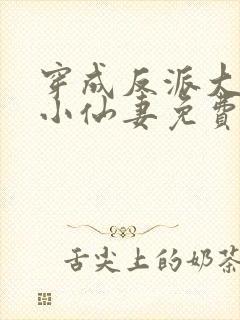 穿成反派大
小仙妻免费
舌尖上的奶茶